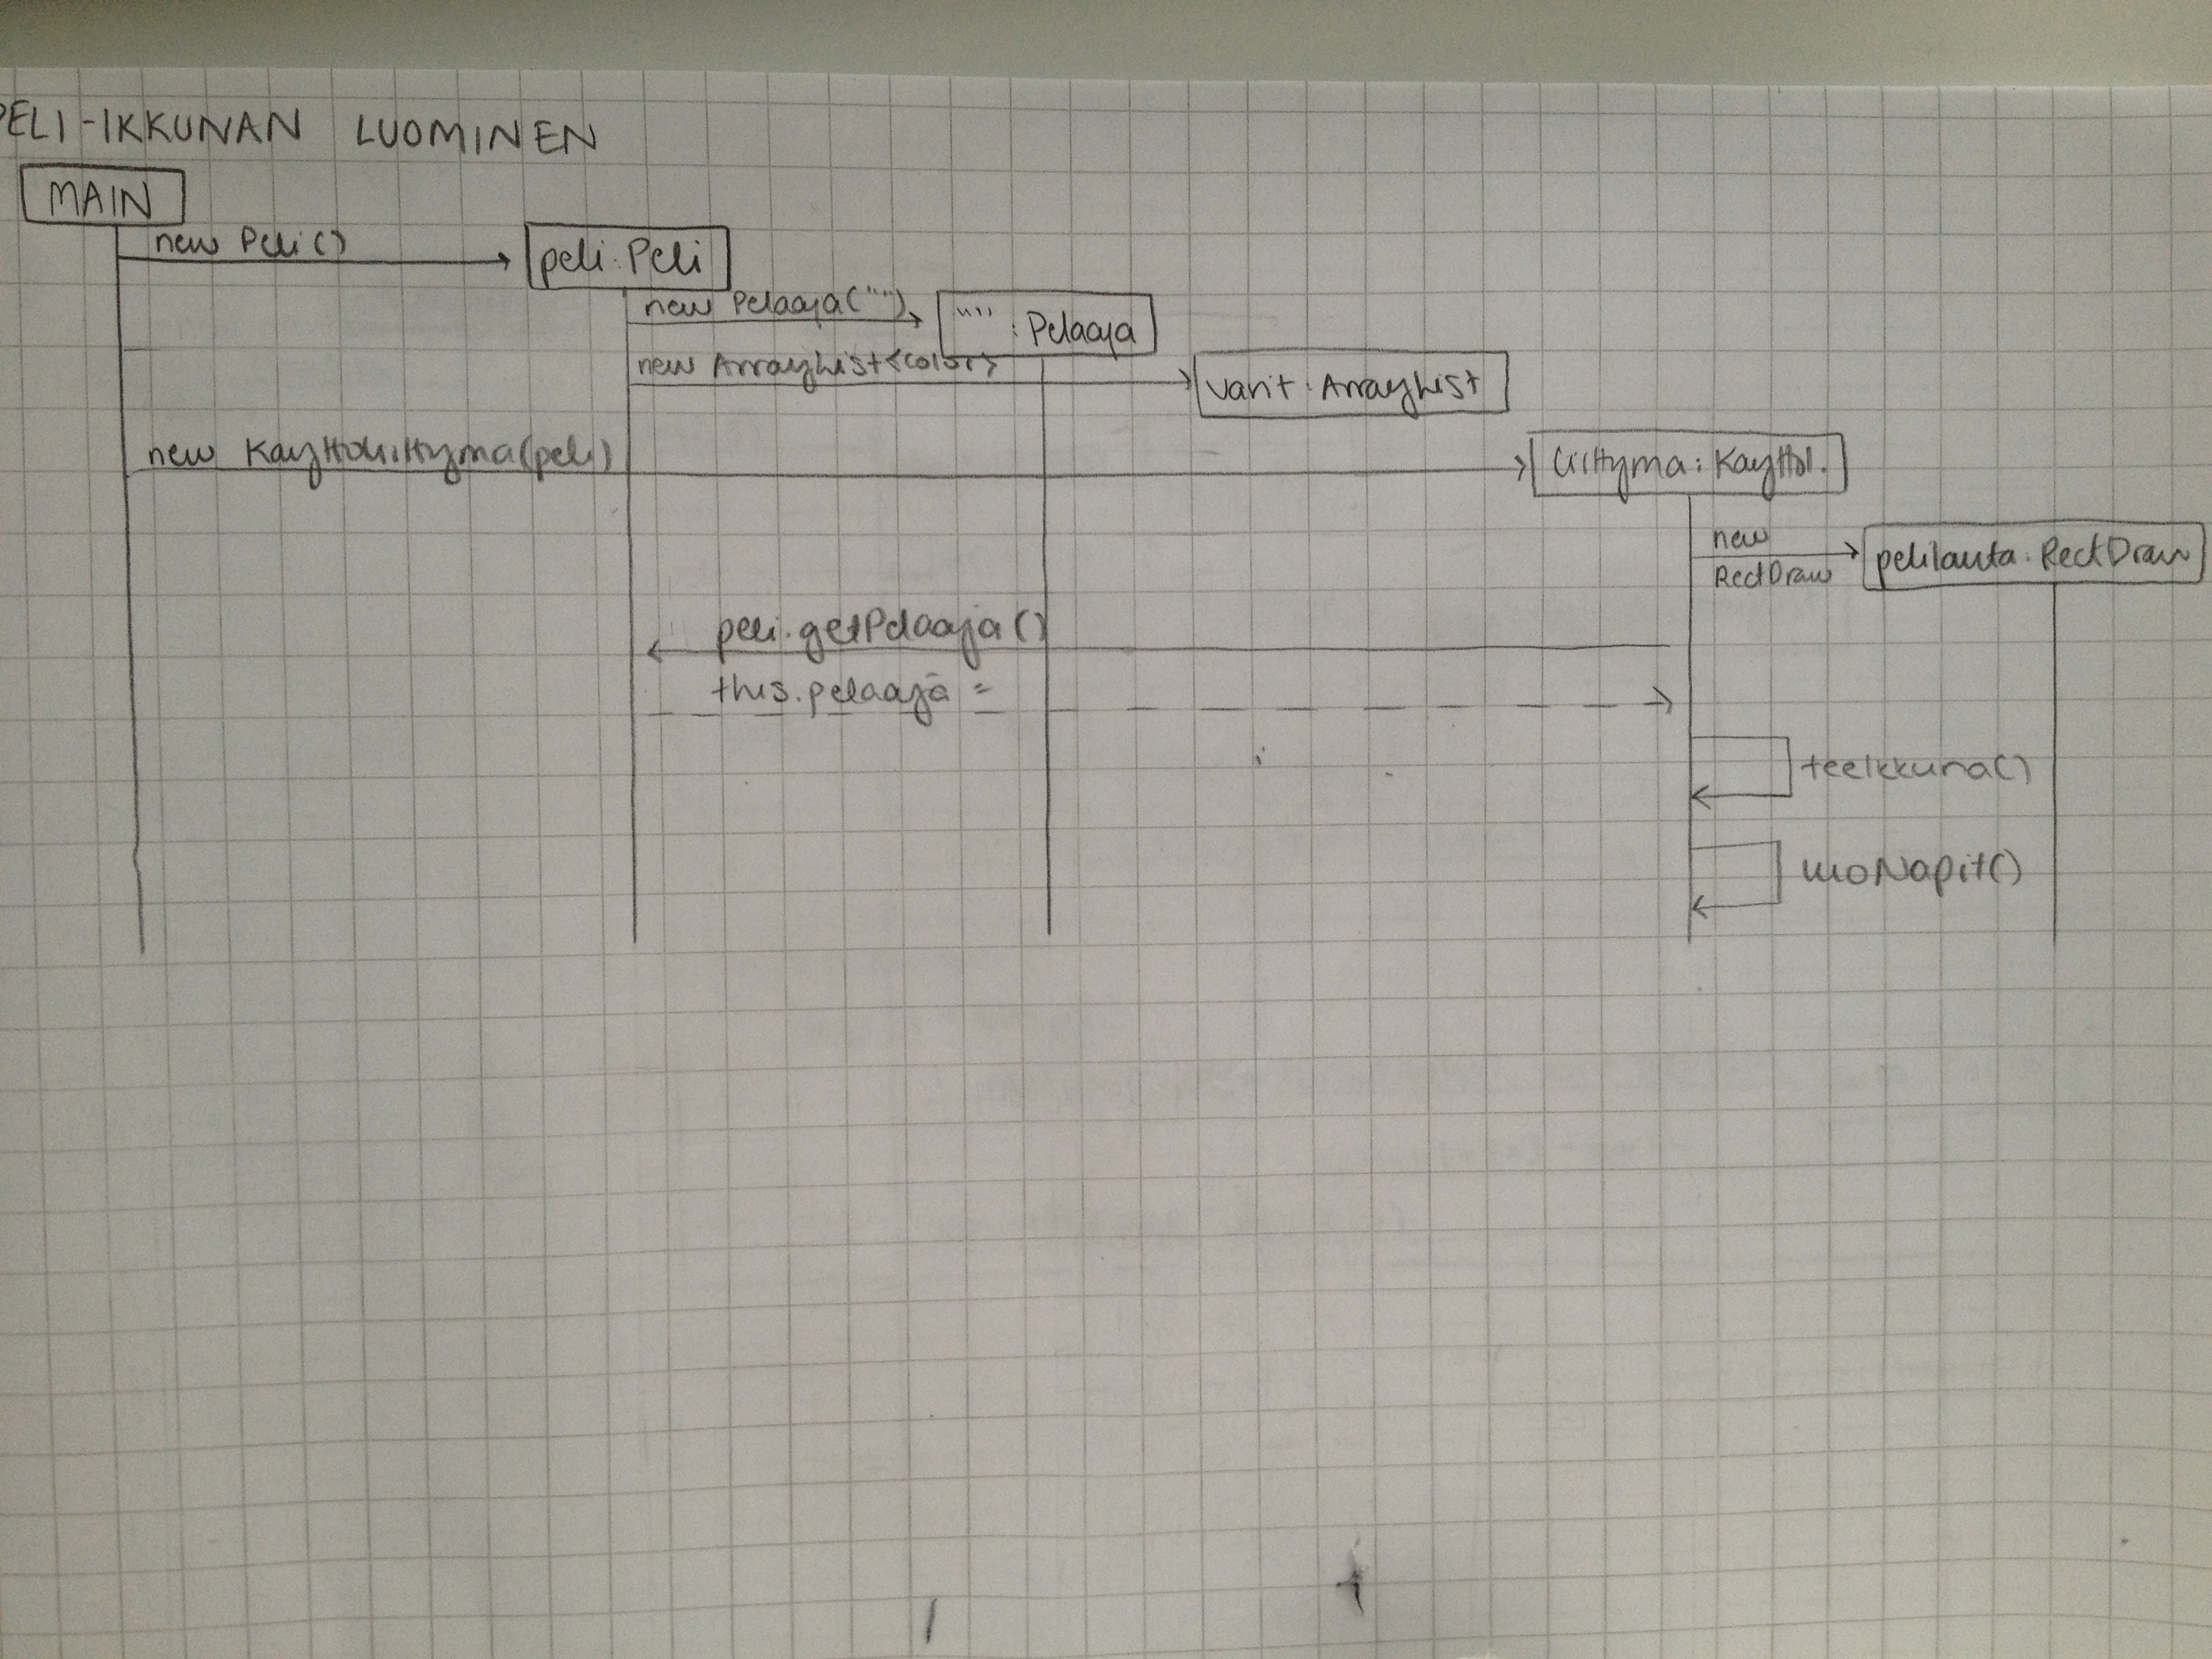 PELI-IKKUNAN LUOMINEN
MAIN
new Peli()
peli:Peli
new Pelaaja("")
"":Pelaaja
new ArrayList<Color>
varit:ArrayList
new Kayttoliittyma(peli)
liittyma:Kayttol.
new
RectDraw
pelilauta:RectDraw
peli.getPelaaja()
this.pelaaja =
teeIkkuna()
luoNapit()